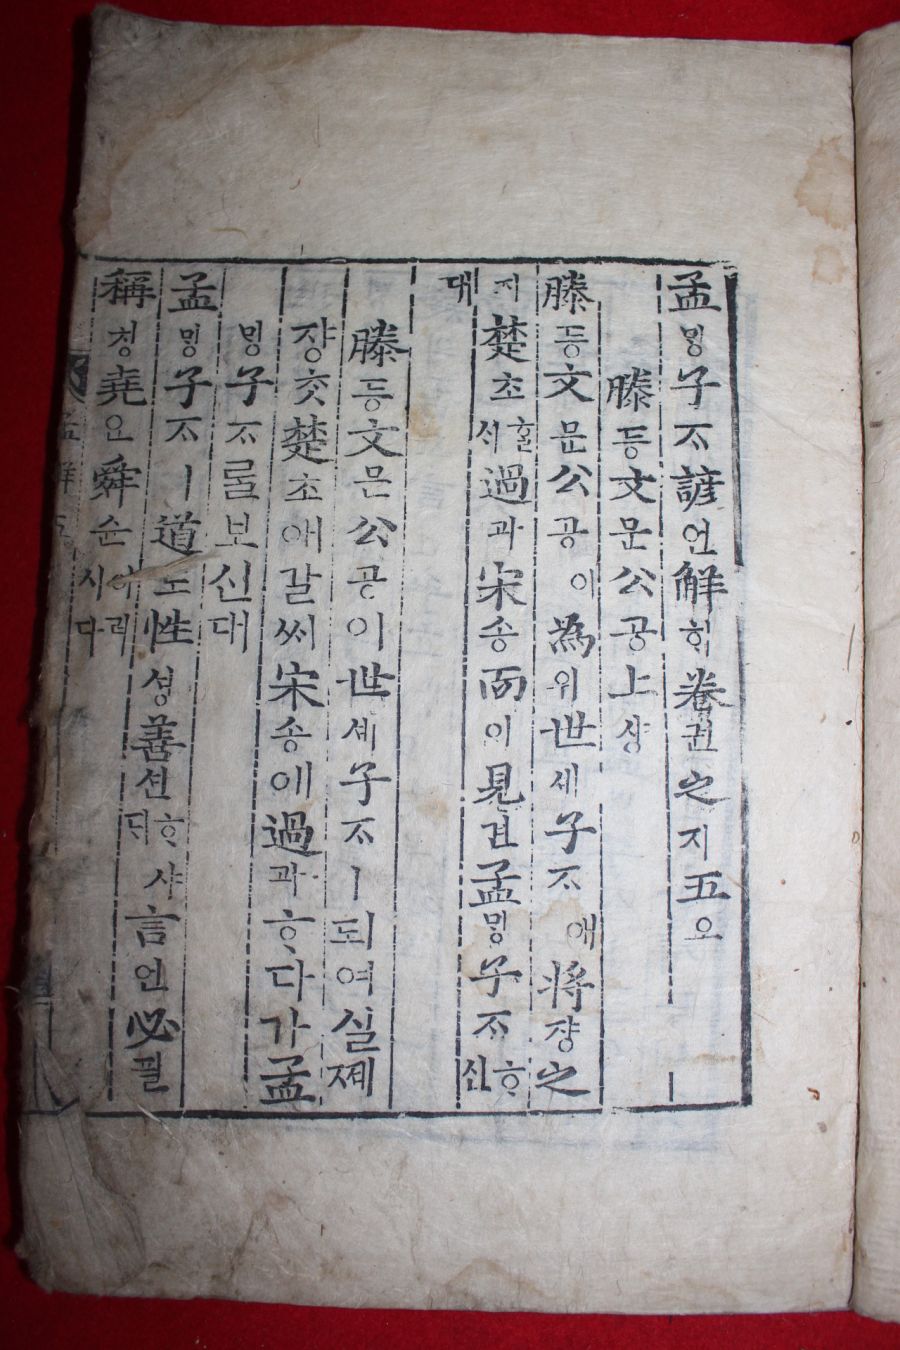 孟ᄆᆡᆼ子ᄌᆞ諺언解ᄒᆡ卷권之지五오
滕등文문公공上샹
滕등文문公공이為위世셰子ᄌᆞ애將쟝之
지楚초ᄒᆞᆯᄉᆡ過과宋송而이見견孟ᄆᆡᆼ子ᄌᆞᄒᆞ신
대
滕등文문公공이世셰子ᄌᆞㅣ되여실제
쟝ᄎᆞᆺ楚초애갈ᄊᆡ宋송애過과ᄒᆞ다가孟
ᄆᆡᆼ子ᄌᆞᄅᆞᆯ보신대
孟ᄆᆡᆼ子ᄌᆞㅣ道도性셩善션ᄒᆞ샤ᄃᆡ言언必필
稱칭堯요舜슌이러시다